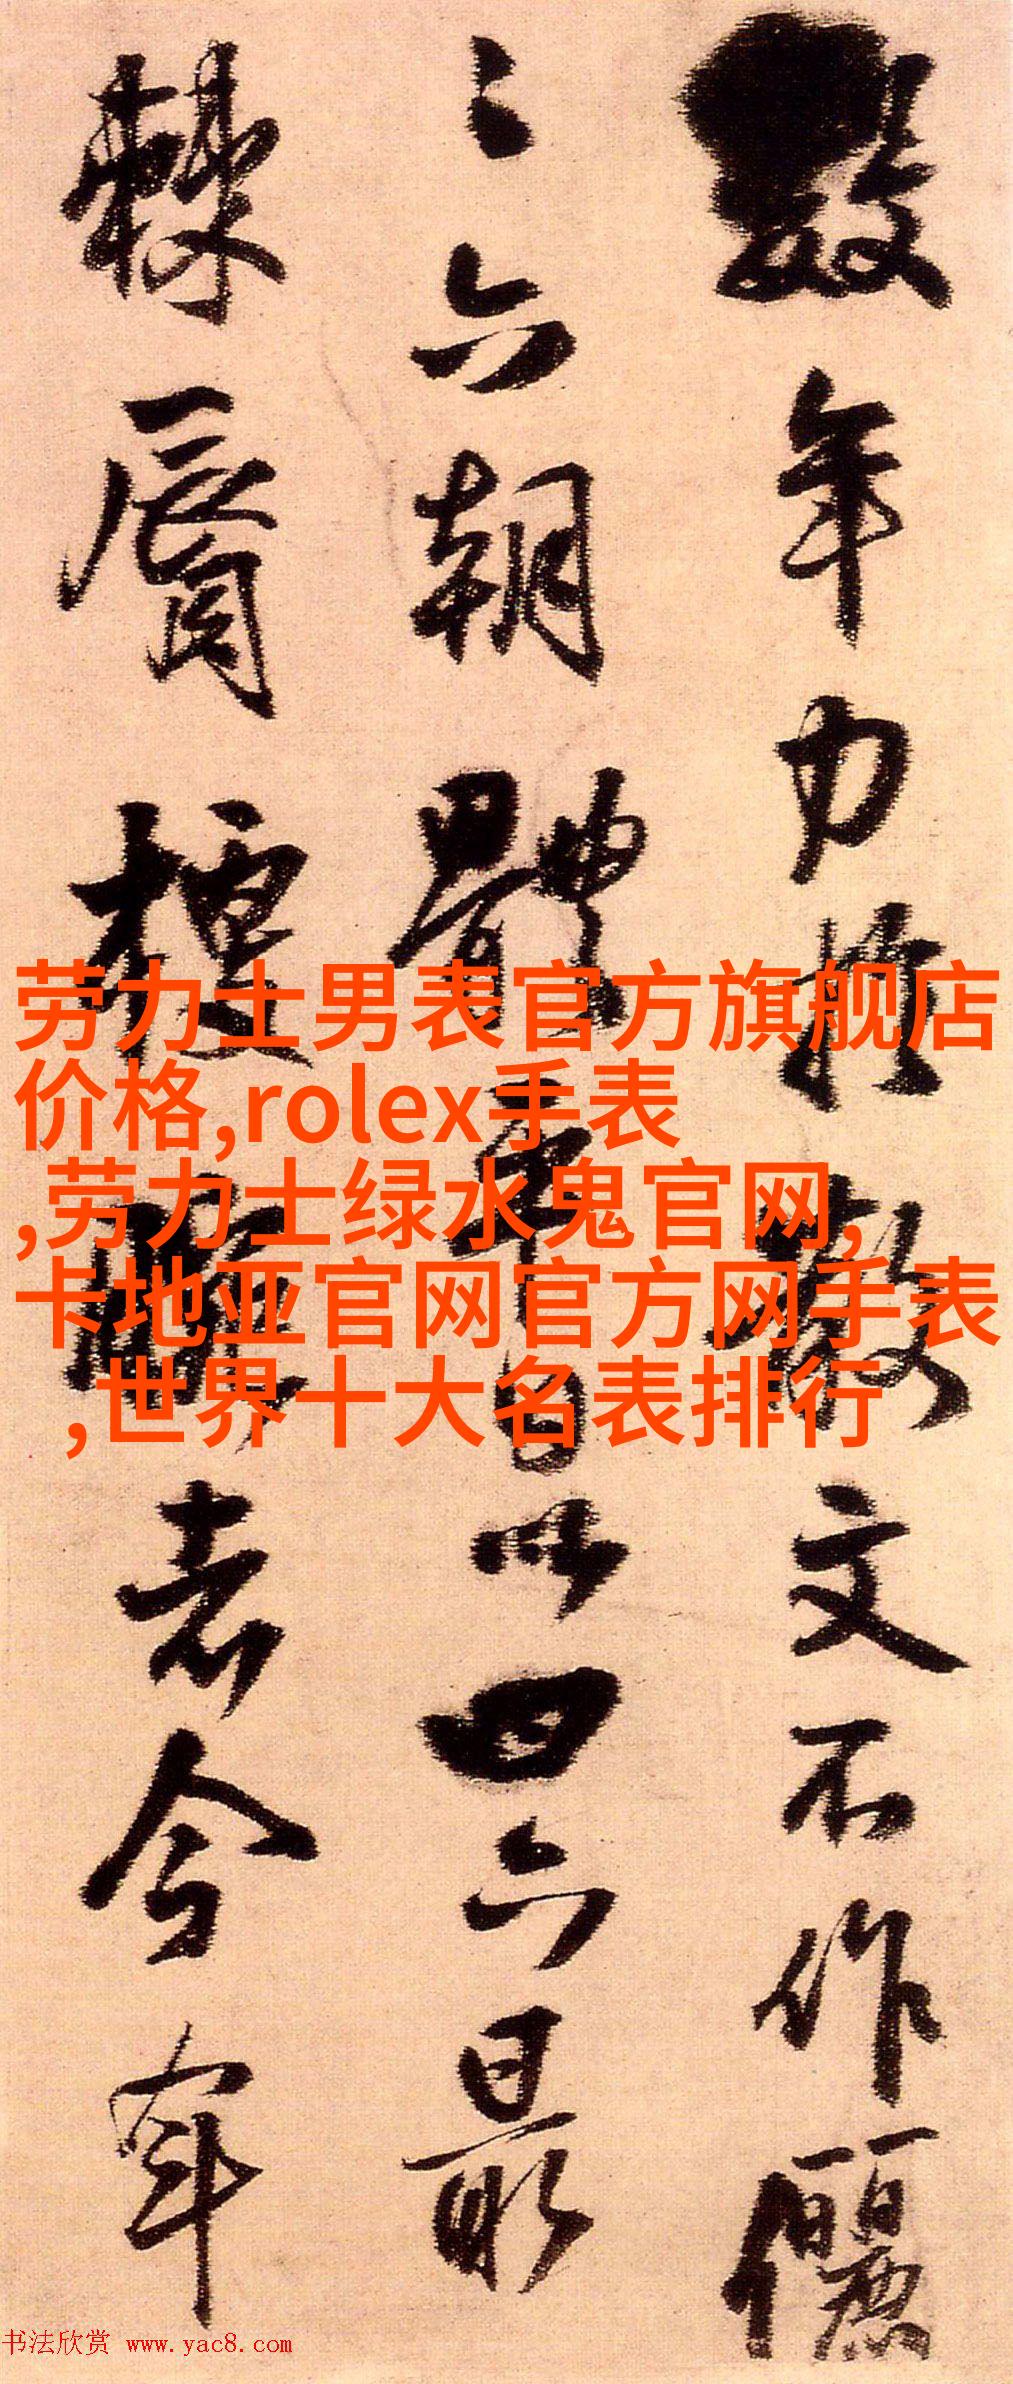 數年力於散文不作儷
六朝體平日以四六最
棘脣梗者今年
劳力士男表官方旗舰店
价格,rolex手表
,劳力士绿水鬼官网,
卡地亚官网官方网手表
,世界十大名表排行
书法欣赏 www.yac8.com